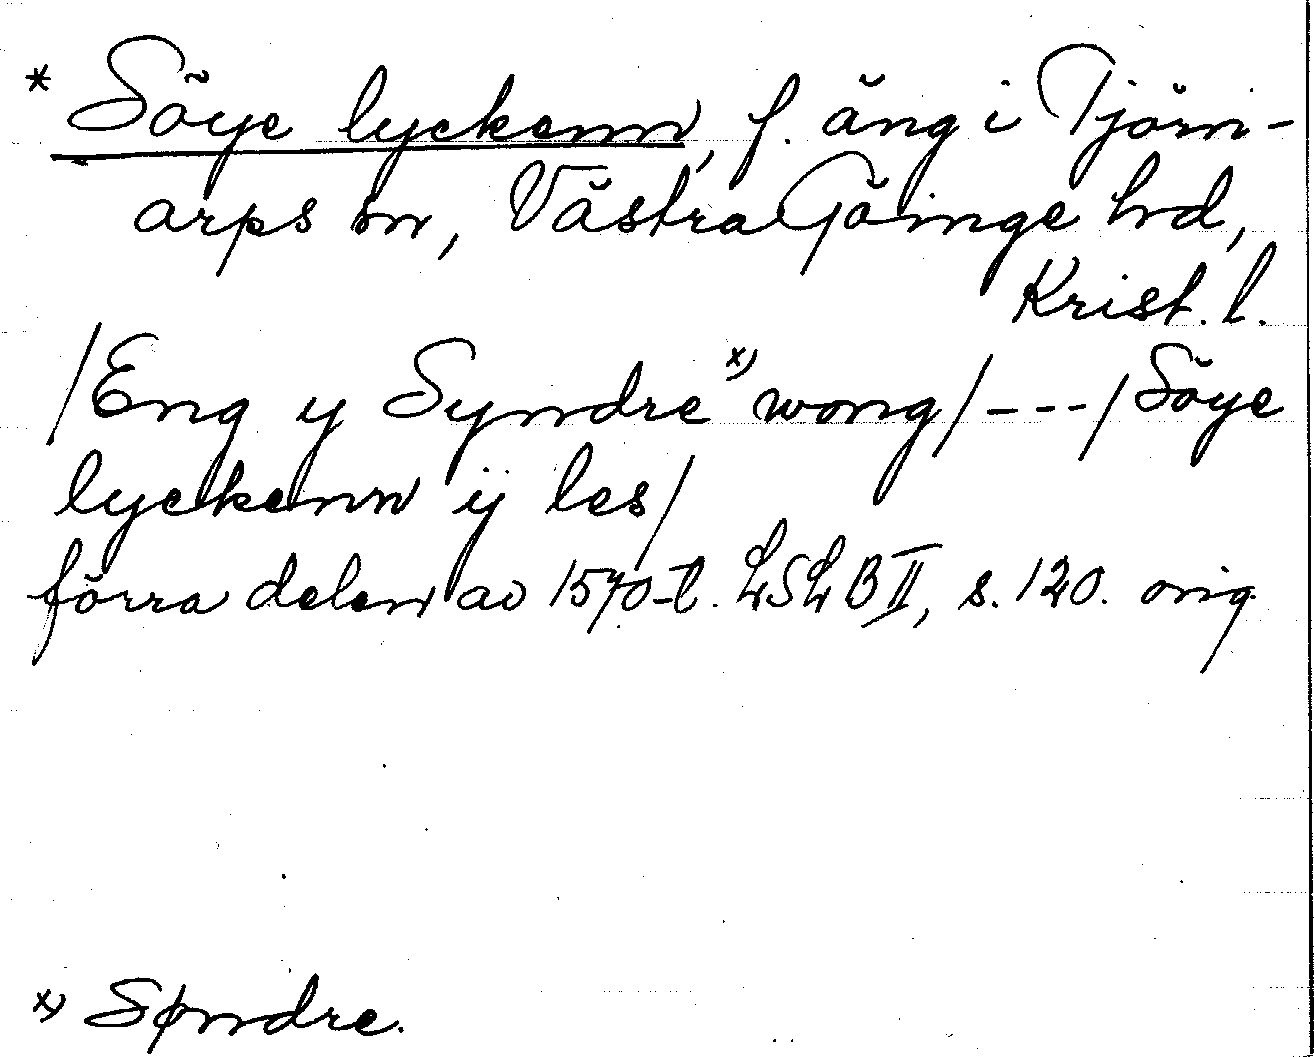 * Söye lyckenn, f. äng i Tjörn-
arps sn, Västra Göinge hd,
Krist. l.
/Eng y Syndre x) wong/---/Söye
lyckenn ÿ les/
förra delen av 1570-t. LSLB II, s. 120. orig.
x) Søndre.